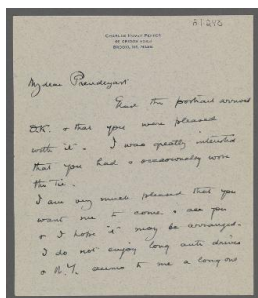 My dear Prendergast
Glad the portrait arrived
O.K. & that you were pleased
with it. I was greatly interested
that you had & occasionally wore
the tie.
I am very much pleased that you
want me to come & see you
& I hope it may be arranged.
I do not enjoy long auto drives
& N.Y. seems to me a long one